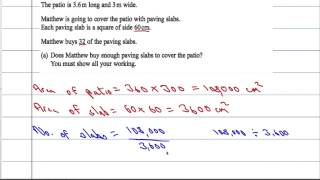 The patio is 3.6 m long and 3 m wide.
Matthew is going to cover the patio with paving slabs.
Each paving slab is a square of side 60 cm.
Matthew buys 32 of the paving slabs.
(a) Does Matthew buy enough paving slabs to cover the patio?
You must show all your working.
Area of patio = 360 × 300 = 108000 cm²
Area of slab = 60 × 60 = 3600 cm²
No. of slabs = 108,000 / 3,600 108,000 ÷ 3,600